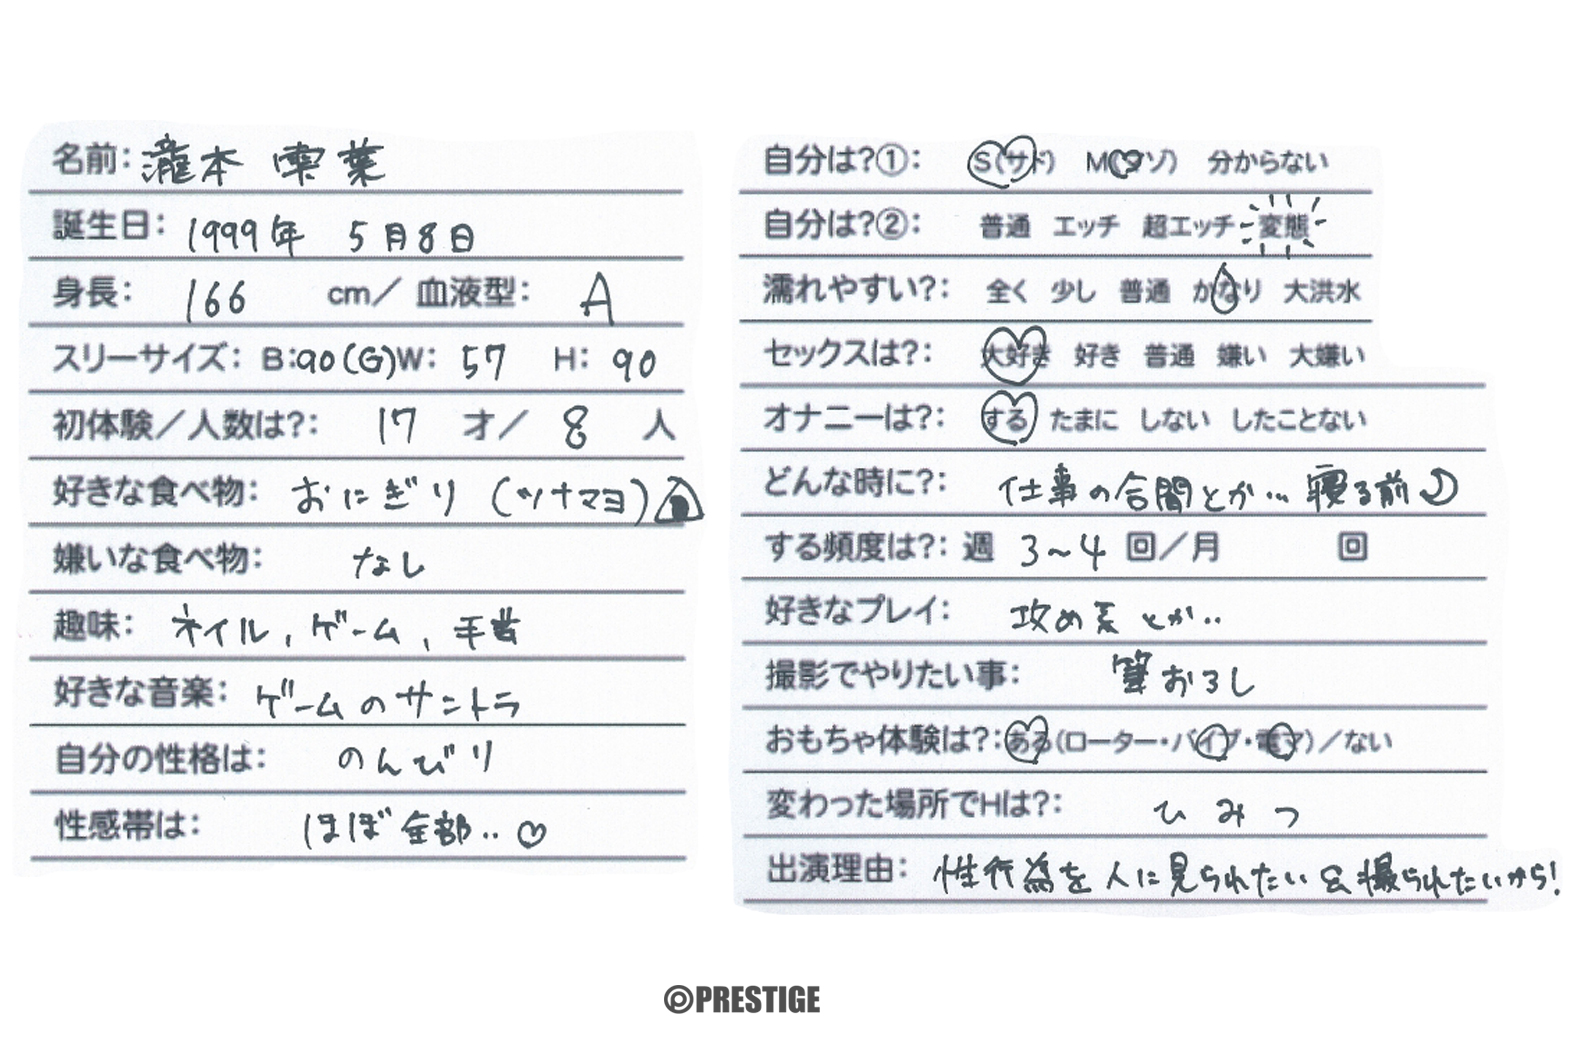 名前: 瀧本 雫葉
誕生日: 1999年 5月8日
身長: 166 cm/ 血液型: A
スリーサイズ: B:90(G)W: 57 H: 90
初体験/人数は?: 17 才/ 8 人
好きな食べ物: おにぎり (ツナマヨ)
嫌いな食べ物: なし
趣味: ネイル, ゲーム, 手芸
好きな音楽: ゲームのサントラ
自分の性格は: のんびり
性感帯は: ほぼ全部..♡
自分は?①: S(サド) M(マゾ) 分からない
自分は?②: 普通 エッチ 超エッチ 変態
濡れやすい?: 全く 少し 普通 かなり 大洪水
セックスは?: 大好き 好き 普通 嫌い 大嫌い
オナニーは?: する たまに しない したことない
どんな時に?: 仕事の合間とか... 寝る前
する頻度は?: 週 3~4 回/月 回
好きなプレイ: 攻め系とか..
撮影でやりたい事: 筆おろし
おもちゃ体験は?: ある(ローター・バイブ・電マ)/ない
変わった場所でHは?: ひみつ
出演理由: 性行為を人に見られたい&撮られたいから!
©PRESTIGE